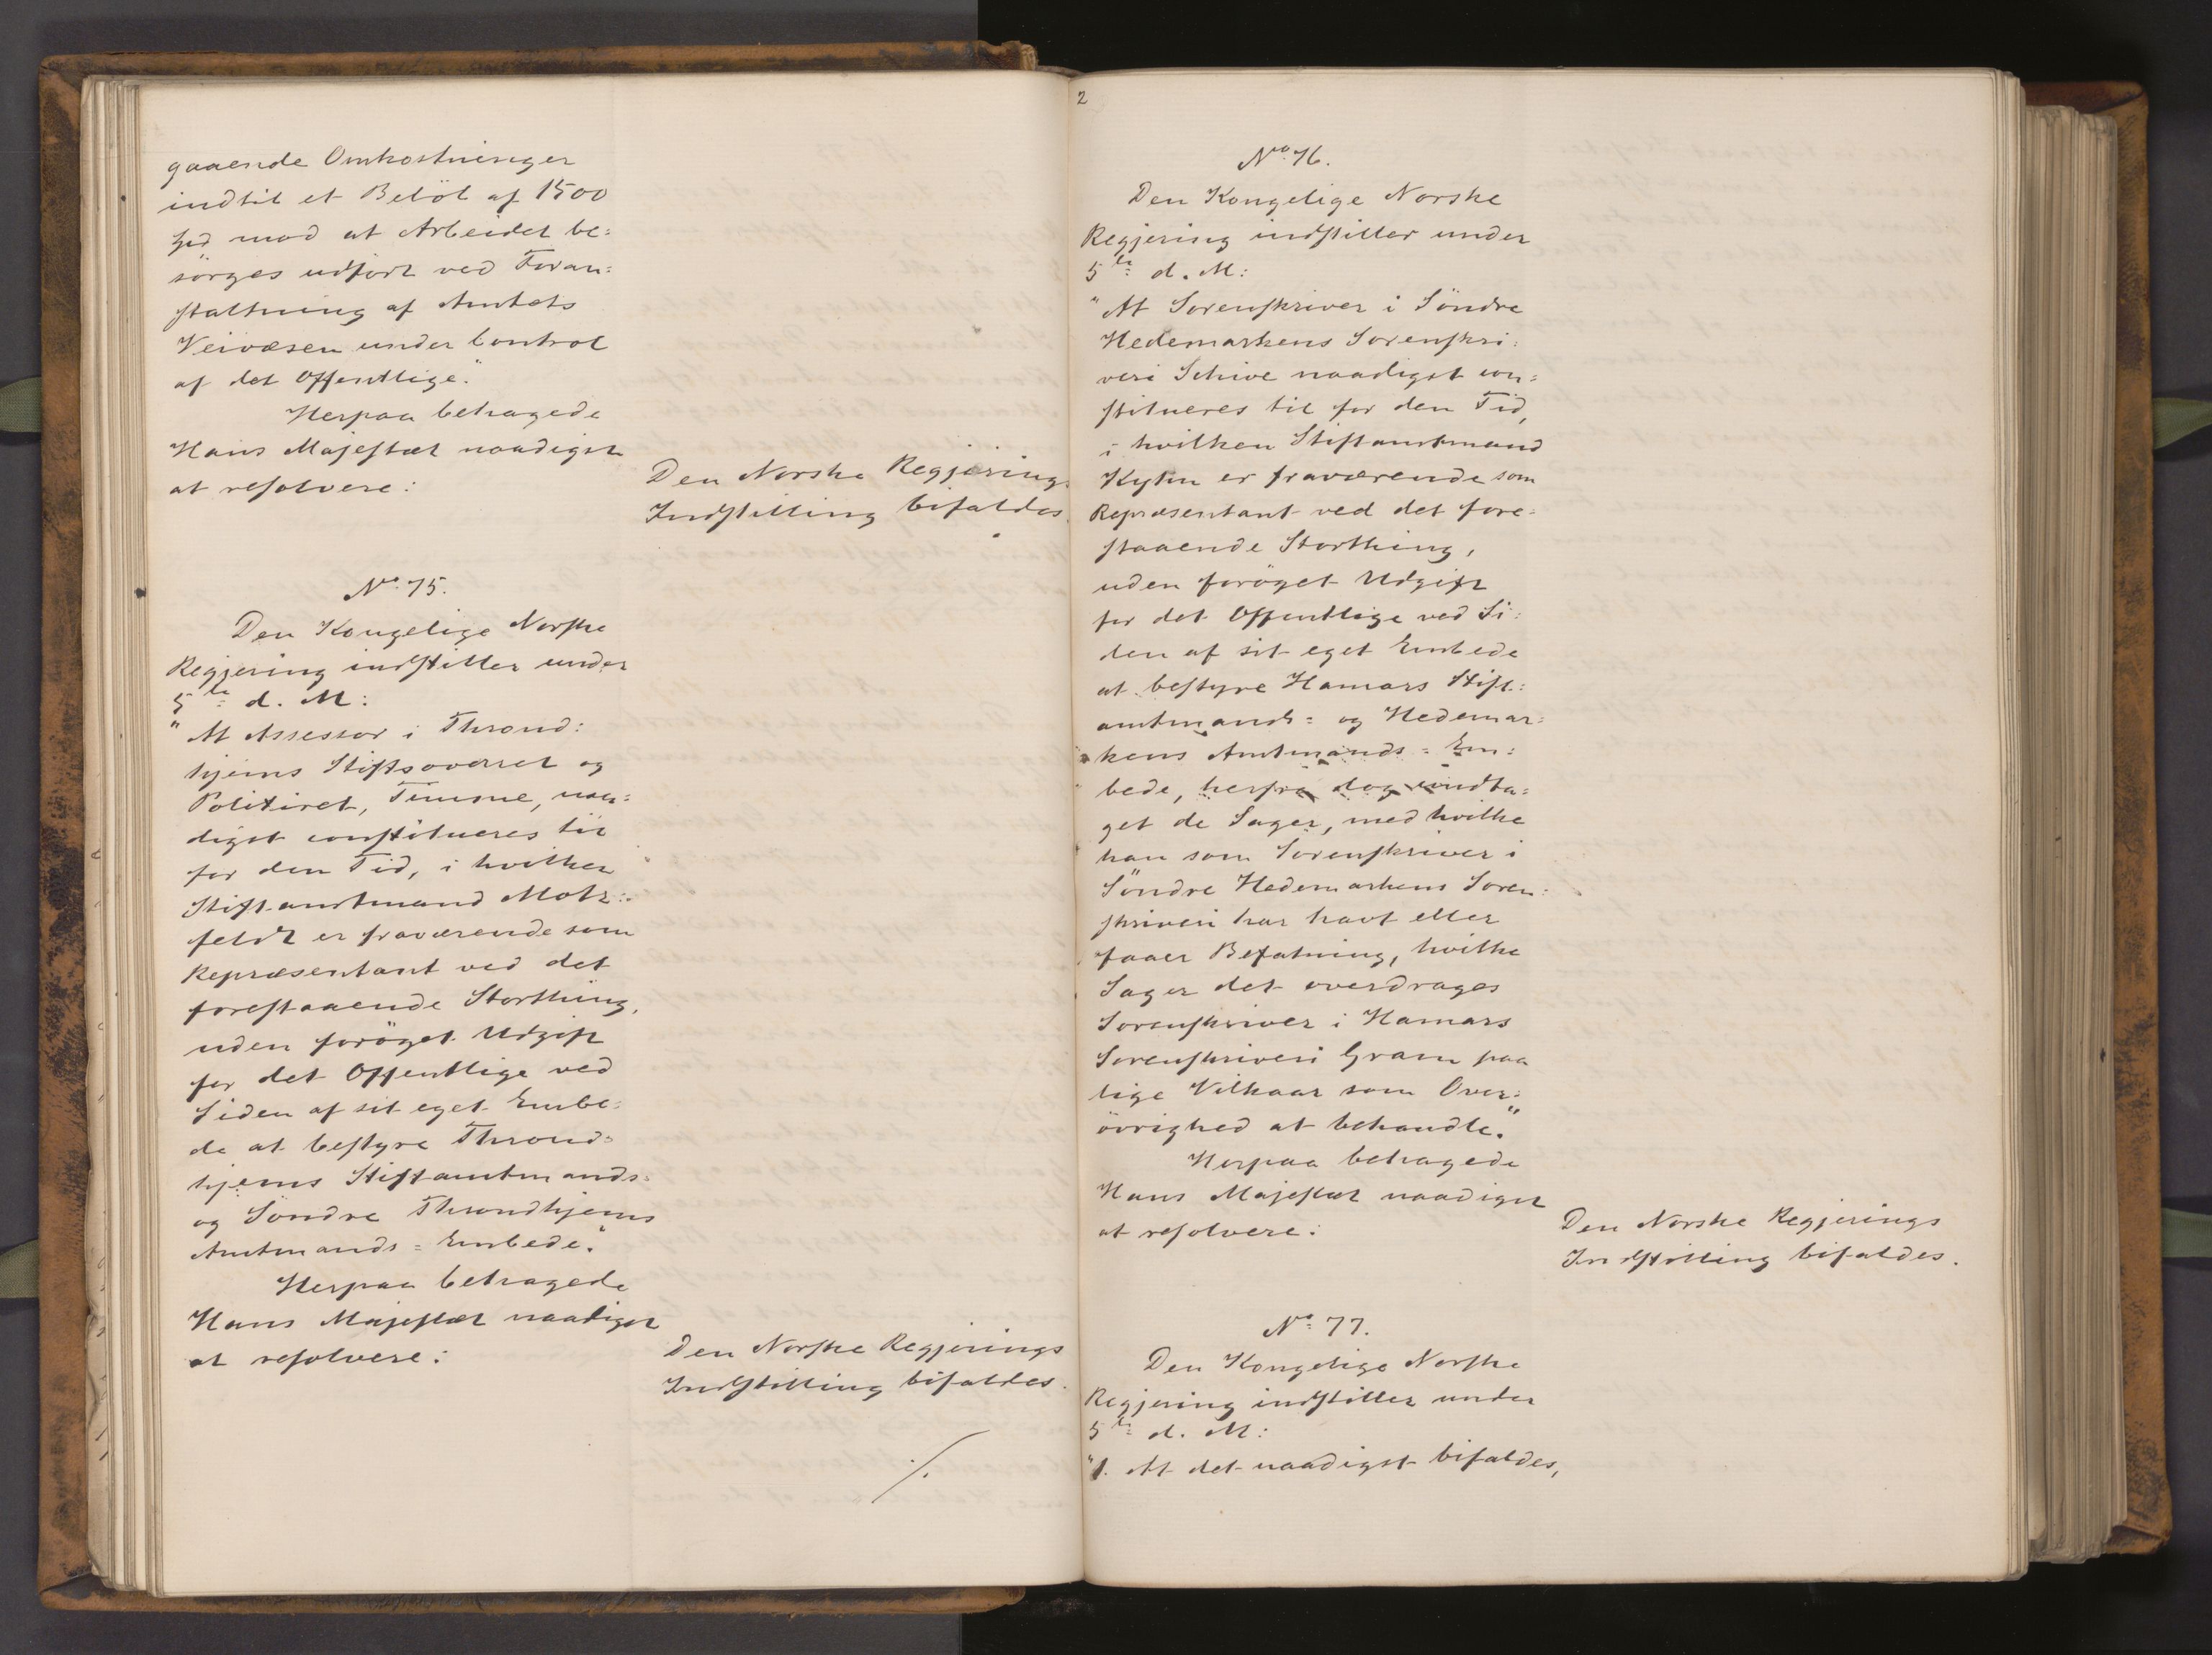 gaaende Omkostninger
indtil et Beløb af 1500
Spd mod at Arbeidet be:
sørges udført ved Foran:
staltning af Amtets
Veivæsen under Control
af det Offentlige."
Herpaa behagede
Hans Majestæt naadigst
at resolvere:
Den Norske Regjerings
Indstilling bifaldes.
No. 75.
Den Kongelige Norske
Regjering indstiller under
5te d. M:
"At Assessor i Thrond:
hjems Stiftsoverret og
Politiret, Timme, naa:
digst constitueres til
for den Tid, i hvilken
Stiftamtmand Motz:
feldt er fraværende som
Repræsentant ved det
forestaaende Storthing,
uden forøget Udgift
for det Offentlige ved
Siden af sit eget Embe:
de at bestyre Thrond:
hjems Stiftamtmands:
og Søndre Throndhjems
Amtmands=Embede."
Herpaa behagede
Hans Majestæt naadigst
at resolvere:
Den Norske Regjerings
Indstilling bifaldes.
./.
2
No. 76.
Den Kongelige Norske
Regjering indstiller under
5te d. M:
"At Sorenskriver i Søndre
Hedemarkens Sorenskri:
veri Schive naadigst con:
stitueres til for den Tid,
i hvilken Stiftamtmand
Kyhn er fraværende som
Repræsentant ved det fore:
staaende Storthing,
uden forøget Udgift
for det Offentlige ved Si:
den af sit eget Embede
at bestyre Hamars Stift:
amtmands= og Hedemar:
kens Amtmands=Em:
bede, herfra dog undta:
get de Sager, med hvilke
han som Sorenskriver i
Søndre Hedemarkens Soren:
skriveri har havt eller
faaer Befatning, hvilke
Sager det overdrages
Sorenskriver i Hamars
Sorenskriveri Gram paa
lige Vilkaar som Over:
øvrighed at behandle."
Herpaa behagede
Hans Majestæt naadigst
at resolvere:
Den Norske Regjerings
Indstilling bifaldes.
No. 77.
Den Kongelige Norske
Regjering indstiller under
5te d. M:
"1. At det naadigst bifaldes,